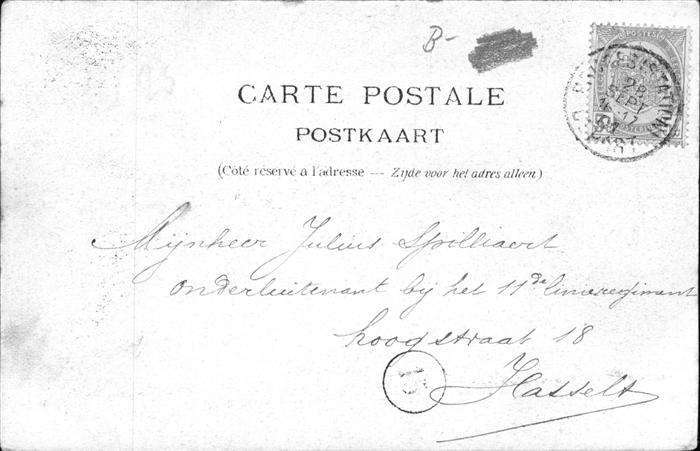 B-
CARTE POSTALE
POSTKAART
(Côté réservé à l'adresse — Zijde voor het adres alleen)
Mijnheer Julius Spilliaert
onderluitenant bij het 11de linieregiment
hoogstraat 18
Hasselt
15